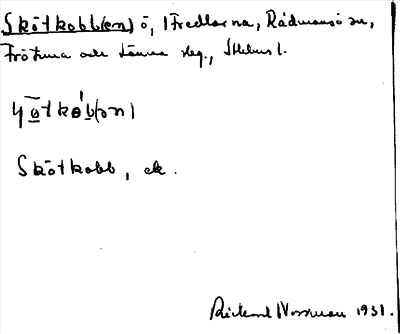 Skötkobb(en) ö, i Fredlarna, Rådmansö sn,
Frötuna och Länna slg., Sthms l.
Skötkobb, ek.
Rickard Norrman 1931.